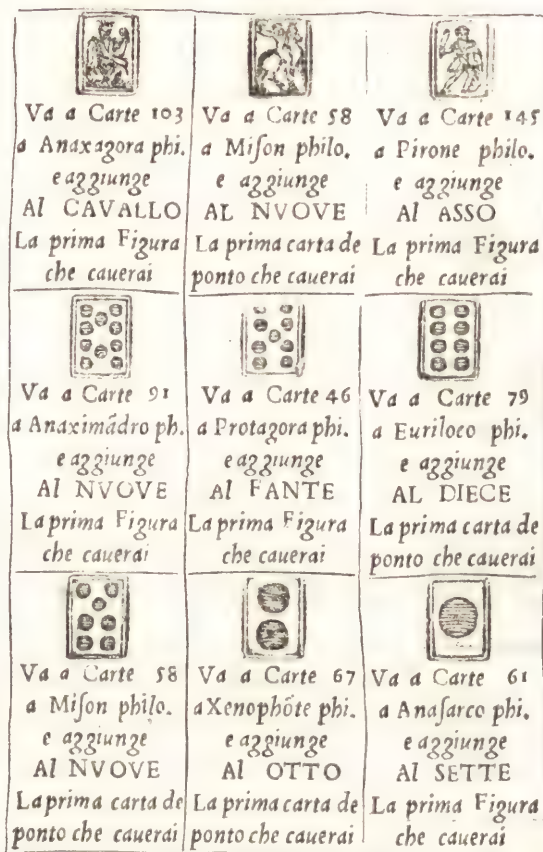 Va a Carte 103
a Anaxagora phi.
e aggiunge
Al CAVALLO
La prima Figura
che cauerai
Va a Carte 58
a Miſon philo.
e aggiunge
AL NVOVE
La prima carta de
ponto che cauerai
Va a Carte 145
a Pirone philo.
e aggiunge
Al ASSO
La prima Figura
che cauerai
Va a Carte 91
a Anaximãdro ph.
e aggiunge
Al NVOVE
La prima Figura
che cauerai
Va a Carte 46
a Protagora phi.
e aggiunge
Al FANTE
La prima Figura
che cauerai
Va a Carte 79
a Euriloco phi.
e aggiunge
AL DIECE
La prima carta de
ponto che cauerai
Va a Carte 58
a Miſon philo.
e aggiunge
Al NVOVE
La prima carta de
ponto che cauerai
Va a Carte 67
a Xenophõte phi.
e aggiunge
Al OTTO
La prima carta de
ponto che cauerai
Va a Carte 61
a Anaſarco phi.
e aggiunge
Al SETTE
La prima Figura
che cauerai